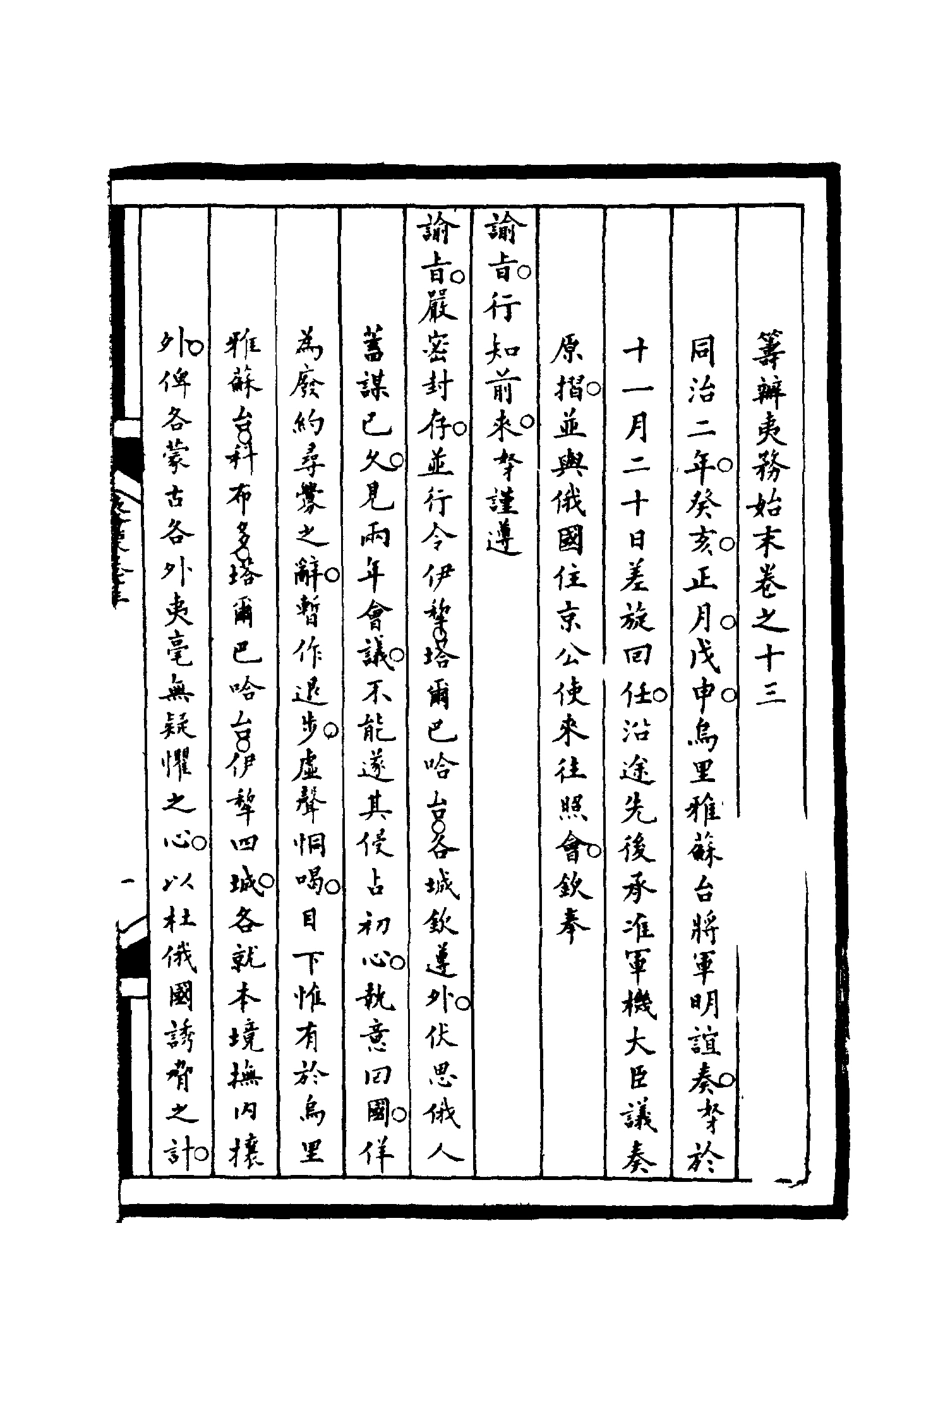 籌辦夷務始末卷之十三
同治二年。癸亥。正月。戊申。烏里雅蘇台將軍明誼奏。奴才於
十一月二十日差旋回任。沿途先後承准軍機大臣議奏
原摺。並與俄國住京公使來往照會。欽奉
諭旨。行知前來。奴才謹遵
諭旨。嚴密封存。並行令伊犂。塔爾巴哈台。各城欽遵外。伏思俄人
蓄謀已久。見兩年會議。不能遂其侵占初心。執意回國。佯
為廢約尋釁之辭。暫作退步。虛聲恫喝。目下惟有於烏里
雅蘇台。科布多。塔爾巴哈台。伊犂四城。各就本境撫內攘
外。俾各蒙古各外夷毫無疑懼之心。以杜俄國誘脅之計。
一